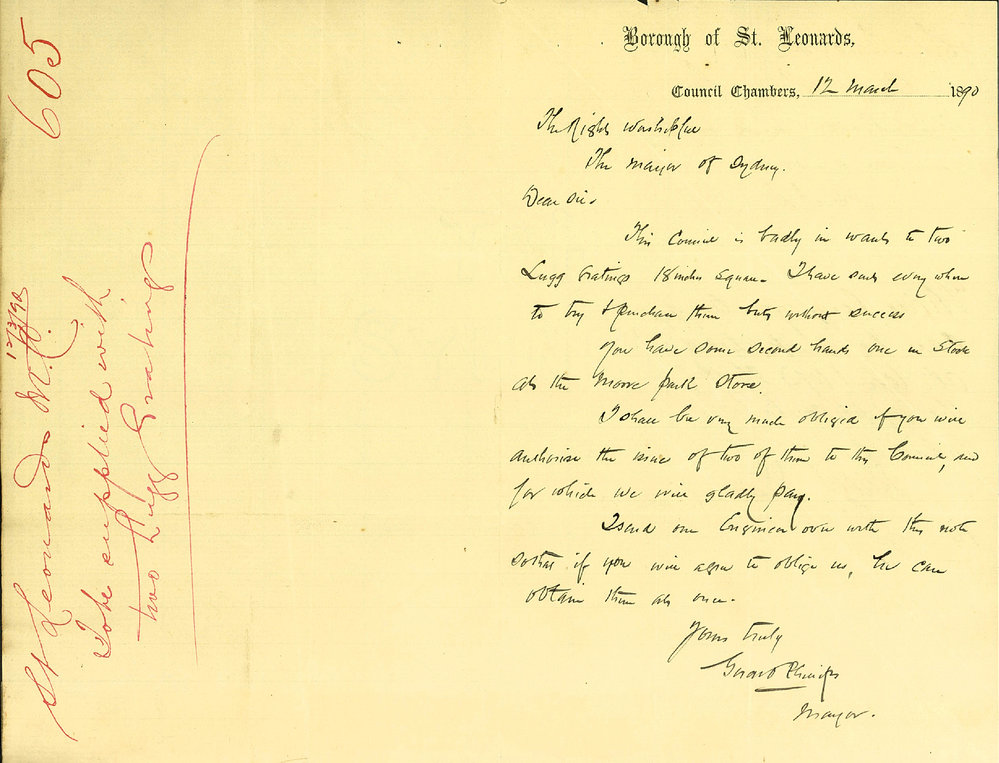 Borough of St. Leonards,
Council Chambers, 12 March 1890
The Right Worshipful
The Mayor of Sydney.
Dear Sir.
This Council is badly in want to two
Lugg Gratings 18 inches Square. I have sent every where
to try & purchase them but without success
You have some second hand one in Stock
at the Moore Park Store.
I shall be very much obliged if you will
authorise the issue of two of them to this Council, and
for which we will gladly pay.
I send our Engineer over with this note
so that if you will agree to oblige us, he can
obtain them at once.
Yours truly
Mayor.
605
St Leonards M.C.
12/3/90
To be supplied with
two Lugg Gratings